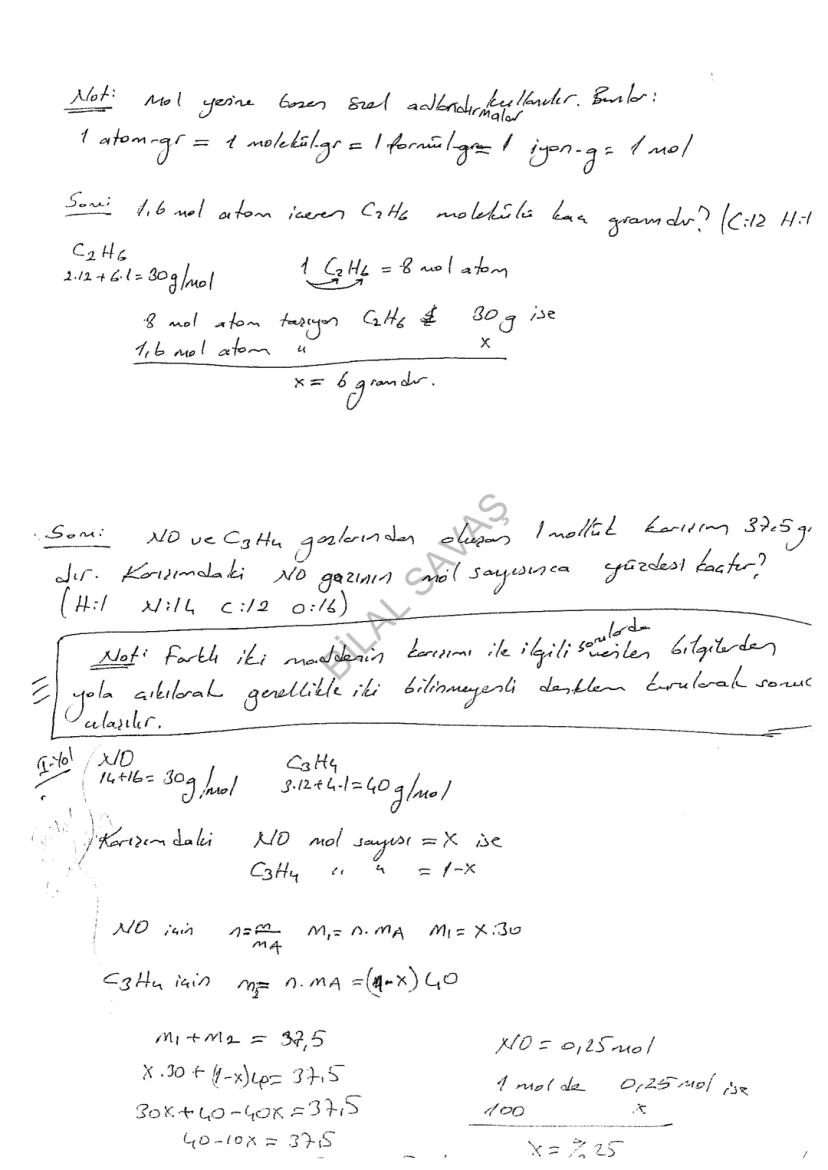 Not: Mol yerine bazen özel adlandırmalar kullanılır. Bunlar:
1 atom-gr = 1 molekül-gr = 1 formül-gr = 1 iyon-g = 1 mol
Soru: 1,6 mol atom içeren C2H6 molekülü kaç gramdır? (C:12 H:1
C2H6
2.12+6.1=30g/mol 1 C2H6 = 8 mol atom
8 mol atom taşıyan C2H6 30 g ise
1,6 mol atom " x
x = 6 gramdır.
Soru: NO ve C3H4 gazlarından oluşan 1 mollük karışım 37.5 g
dır. Karışımdaki NO gazının mol sayısınca yüzdesi kaçtır?
(H:1 N:14 C:12 O:16)
BİLAL SAVAŞ
Not: Farklı iki maddenin karışımı ile ilgili sorularda verilen bilgilerden
yola çıkılarak genellikle iki bilinmeyenli denklem kurularak sonuc
ulaşılır.
I.Yol NO C3H4
14+16=30g/mol 3.12+4.1=40g/mol
Karışımdaki NO mol sayısı = x ise
C3H4 " " = 1-x
NO için n=m/MA m1=n.MA m1=x.30
C3H4 için m2=n.MA=(1-x)40
m1+m2 = 37,5
x.30+(1-x)40=37,5
30x+40-40x=37,5
40-10x=37,5
NO=0,25mol
1 mol da 0,25 mol ise
100 x
x=%25